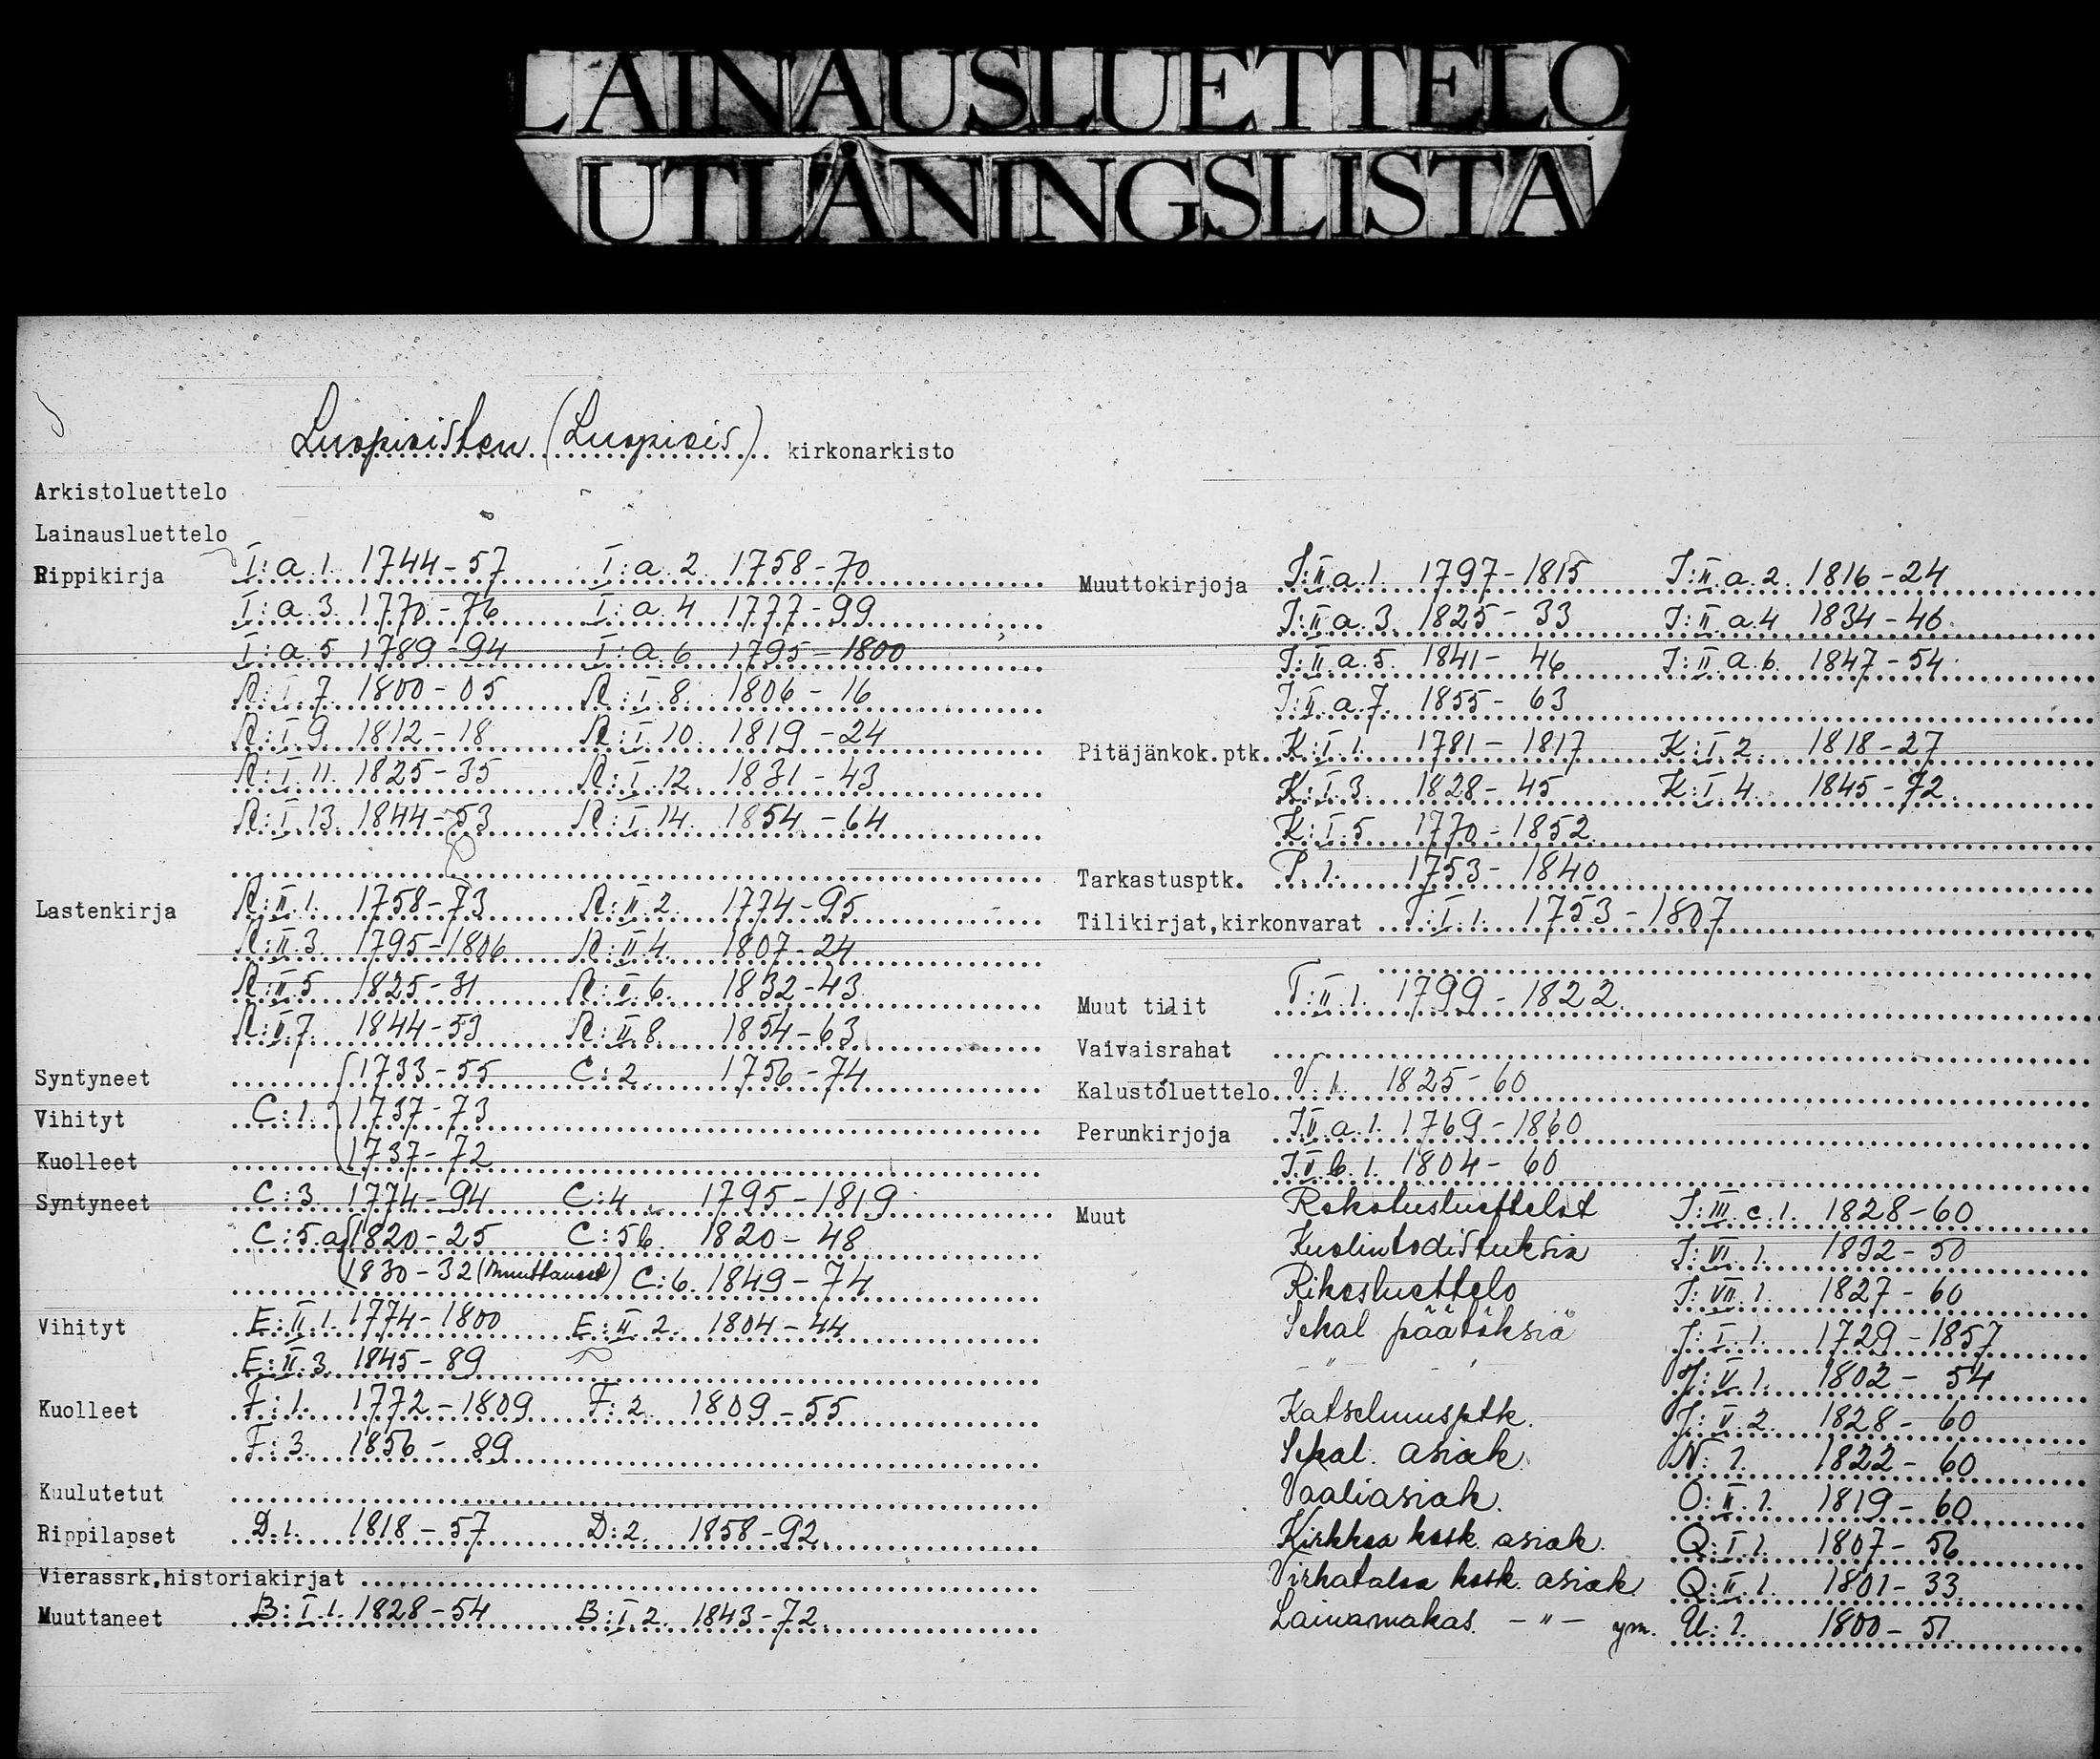 LAINAUSLUETTELO
UTLÅNINGSLISTA
Luopioisten (Luopiois) kirkonarkisto
Arkistoluettelo
Lainausluettelo
Rippikirja I:a.1. 1744-57 I:a.2. 1758-70
I:a.3. 1770-76 I:a.4 1777-99
I:a.5 1789-94 I:a.6 1795-1800
R:I.7. 1800-05 R:I.8. 1806-16
R:I.9. 1812-18 R:I.10. 1819-24
R:I.11. 1825-35 R:I.12. 1831-43
R:I.13. 1844-53 R:I.14. 1854-64
Lastenkirja R:II.1. 1758-73 R:II.2. 1774-95
R:II.3. 1795-1806 R:II.4. 1807-24
R:II.5 1825-31 R:II.6. 1832-43
R:II.7. 1844-53 R:II.8. 1854-63
Syntyneet 1733-55 C:2. 1756-74
Vihityt C:1. 1737-73
Kuolleet 1737-72
Syntyneet C:3. 1774-94 C:4. 1795-1819
C:5.a 1820-25 C:5b. 1820-48
1830-32 (muuttaneet) C:6. 1849-74
Vihityt E:II.1. 1774-1800 E:II.2. 1804-44
E:II.3. 1845-89
Kuolleet F:1. 1772-1809 F:2. 1809-55
F:3. 1856-89
Kuulutetut
Rippilapset D.1. 1818-57 D:2. 1858-92.
Vierassrk,historiakirjat
Muuttaneet B:I.1. 1828-54 B:I.2. 1843-72.
Muuttokirjoja J:II.a.1. 1797-1815 J:II.a.2. 1816-24
J:II.a.3. 1825-33 J:II.a.4 1834-46.
J:II.a.5. 1841-46 J:II.a.6. 1847-54.
J:II.a.7. 1855-63
Pitäjänkok.ptk. K:I.1. 1781-1817 K:I.2. 1818-27
K:I.3. 1828-45 K:I.4. 1845-72.
K:I.5 1770-1852.
Tarkastusptk. P.1. 1753-1840
Tilikirjat,kirkonvarat T:I.1. 1753-1807
Muut tilit T:II.1. 1799-1822.
Vaivaisrahat
Kalustoluettelo V.1. 1825-60
Perunkirjoja J.V.a.1. 1769-1860
J.V.b.1. 1804-60
Muut Rokotusluettelot J:III.c.1. 1828-60
Kuolintodistuksia J:VI.1. 1832-50
Rikosluettelo J:VII.1. 1827-60
Sekal päätöksiä J:I.1. 1729-1857
-"- J:V.1. 1802-54
Katselmusptk. J:V.2. 1828-60
Sekal. asiak. N:1. 1822-60
Vaaliasiak. O:II.1. 1819-60
Kirkkoa kosk. asiak. Q:I.1. 1807-56
Virkataloa kosk. asiak. Q:II.1. 1801-33.
Lainamakas. -"- ym. U:1. 1800-51.